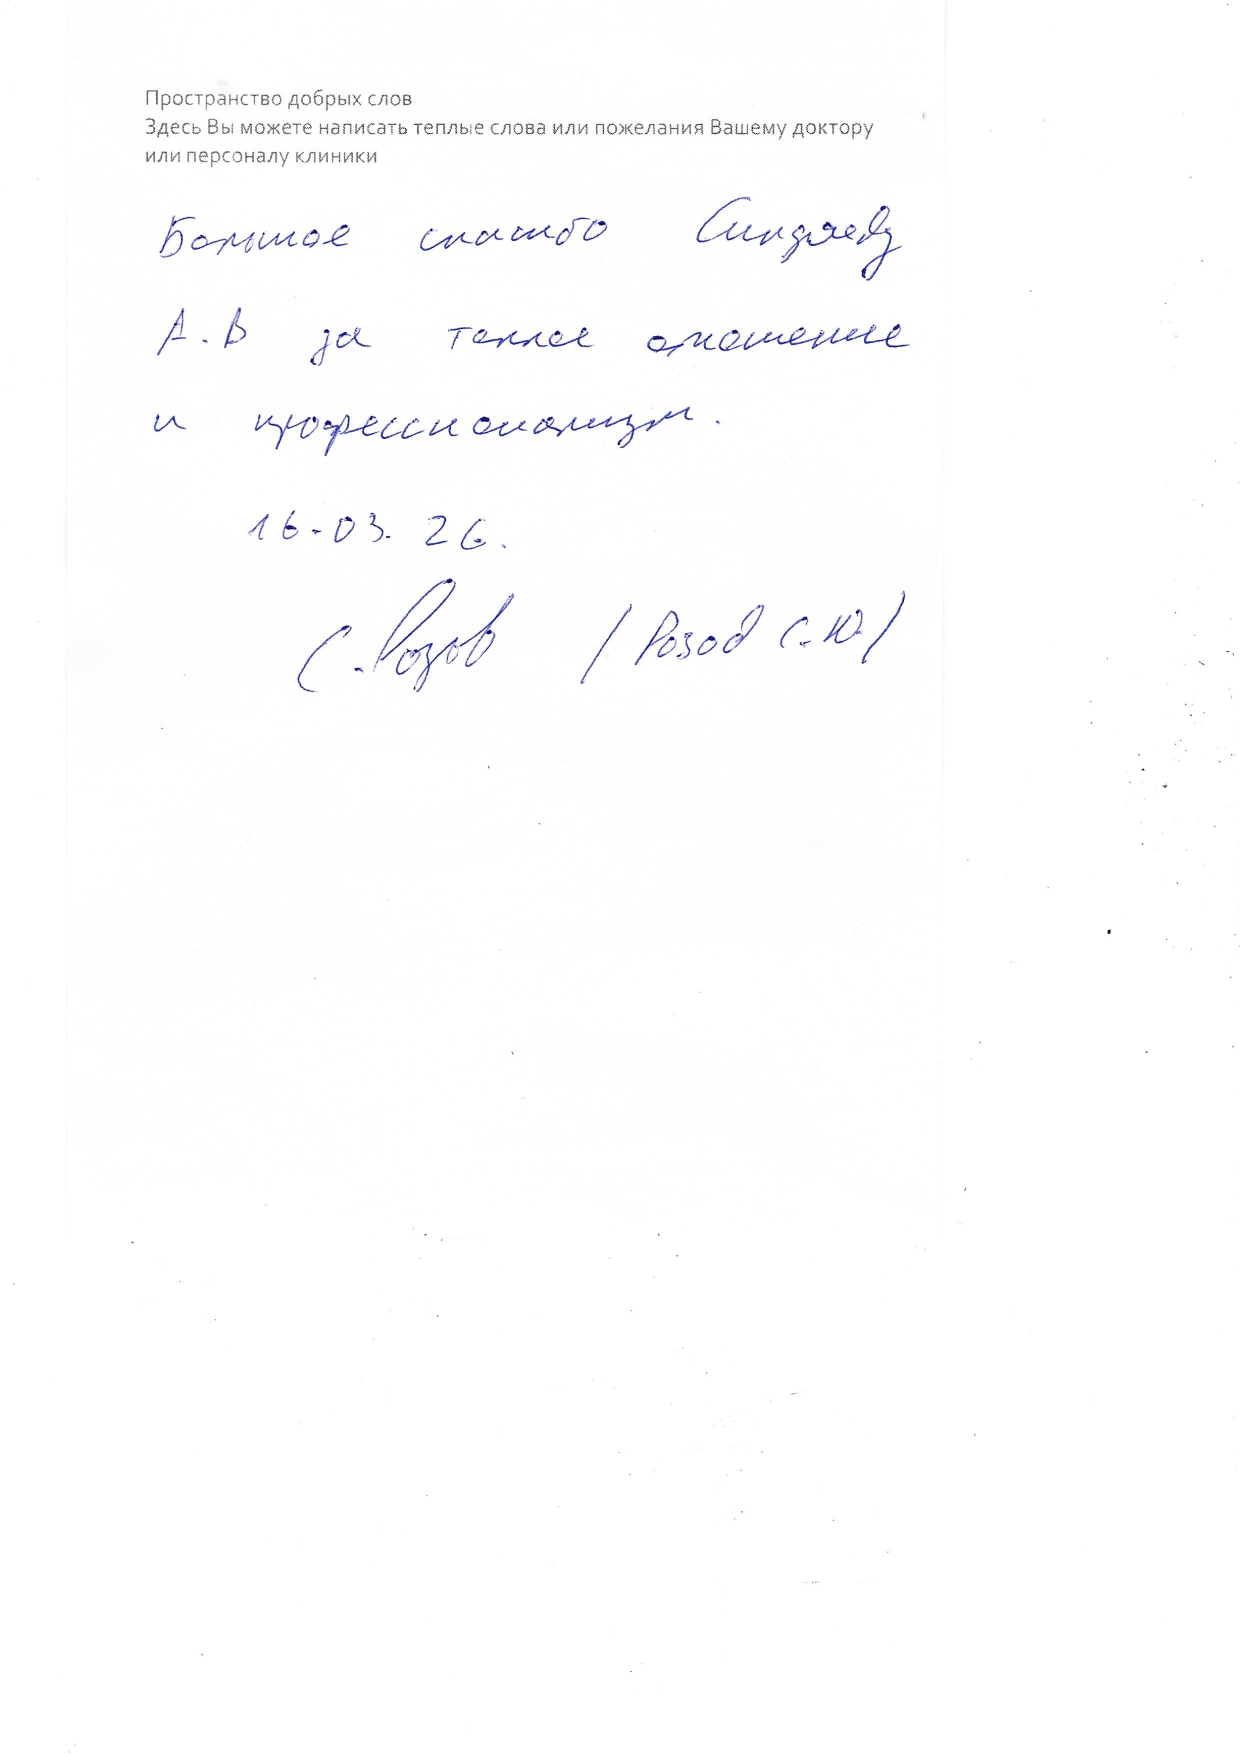 Пространство добрых слов
Здесь Вы можете написать теплые слова или пожелания Вашему доктору
или персоналу клиники
Большое спасибо Синдяеву
А.В за теплое отношение
и профессионализм.
16.03.26.
С.Розов /Розов С.Ю./